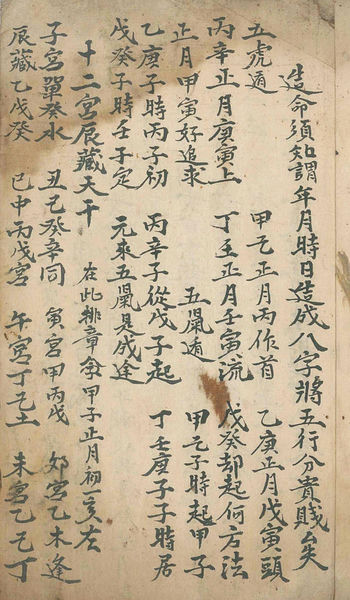 造命須知謂年月時日造成八字將五行分貴賤
五虎遁 甲乙正月丙作首 乙庚正月戊寅頭
丙辛正月庚寅上 丁壬正月壬寅流 戊癸却起何方法
正月甲寅好追求 五鼠遁 甲乙子時起甲子
乙庚子時丙子初 丙辛子從戊子起 丁壬庚子子時居
戊癸子時壬子定 元來五鼠是成途
十二宮辰藏天干 在此排章 甲子正月初一
子宮單癸水 丑己癸辛同 寅宮甲丙戊 卯宮乙木逢
辰藏乙戊癸 巳中丙戊宮 午宮丁己土 未宮乙己丁